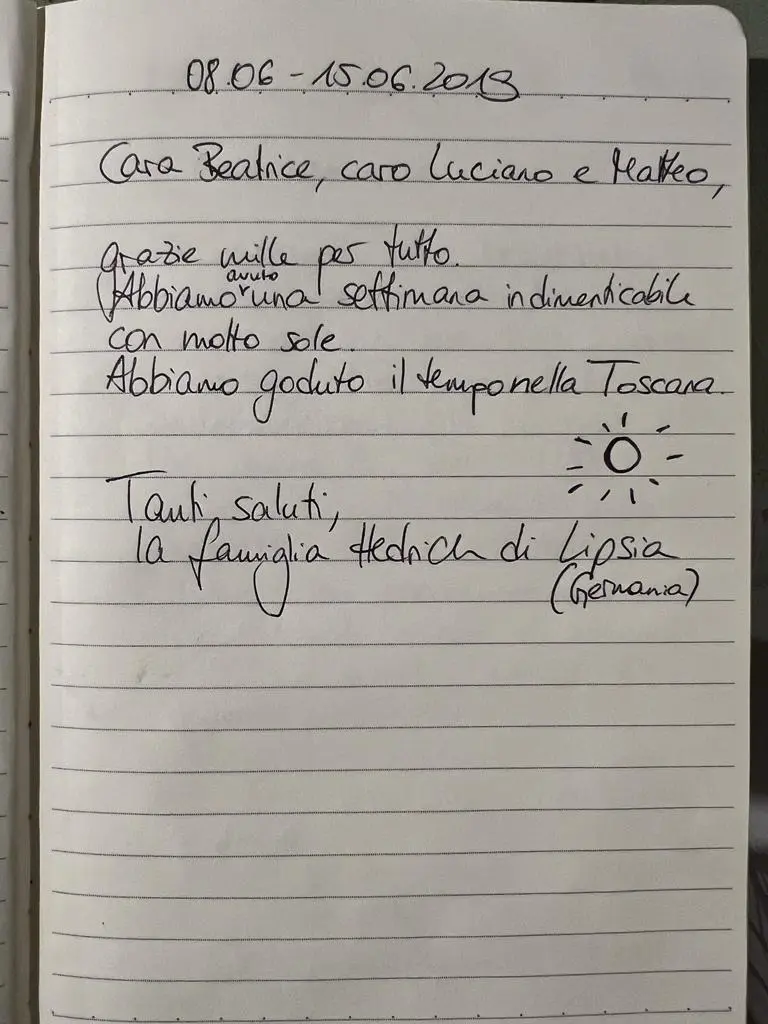 08.06 - 15.06.2019
Cara Beatrice, caro Luciano e Matteo,
grazie mille per tutto.
Abbiamo avuto una settimana indimenticabile
con molto sole.
Abbiamo goduto il tempo nella Toscana.
Tanti saluti,
la famiglia Hedrich di Lipsia
(Germania)